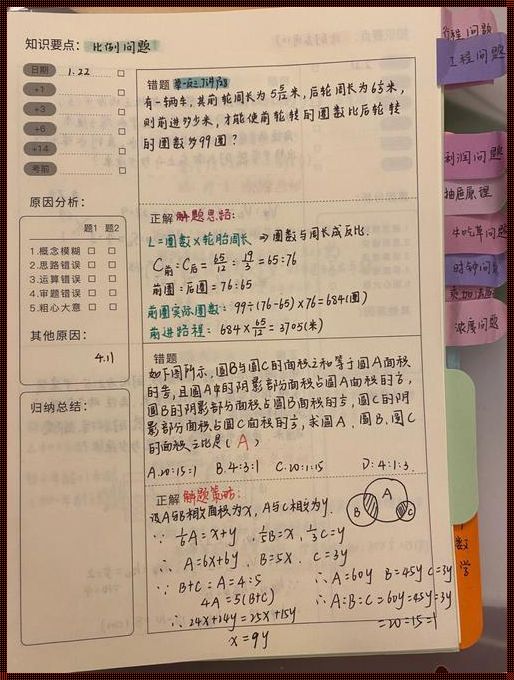 知识要点：比例问题
日期 1.22
+1
+3
+6
+14
考前
原因分析：
题1 题2
1.概念模糊
2.思路错误
3.运算错误
4.审题错误
5.粗心大意
其他原因：
4.11
归纳总结：
错题
有一辆车，其前轮周长为5 5/12米，后轮周长为6 1/3米，
则前进多少米，才能使前轮转的圈数比后轮转
的圈数多99圈？
正解 解题思路：
L=圈数×轮胎周长 ⇒圈数与周长成反比.
C前：C后=65/12：19/3=65:76
前圈：后圈=76:65
前圈实际圈数：99÷(76-65)×76=684(圈)
前进路程：684×65/12=3705(米)
错题
如下图所示，圆B与圆C的面积之和等于圆A面积
的4/5，且圆A中的阴影部分面积占圆A面积的1/6，
圆B的阴影部分面积占圆B面积的1/5，圆C的阴
影部分面积占圆C面积的1/3，求圆A、圆B、圆C
的面积之比是（A）
A.20:15:1 B.4:3:1 C.20:1:15 D:4:1:3
正解 解题策略：
设A与B相交面积为x，A与C相交为y.
∵ 1/6A=x+y，1/5B=x，1/3C=y
∴ A=6x+6y，B=5x，C=3y
∵ B+C：A=4:5
4A=5(B+C)
∴ 24x+24y=25x+15y
x=9y
∴ A=60y B=45y C=3y
∴ A:B:C=60y:45y:3y
=20:15:1
A
B
C
行程问题
工程问题
利润问题
抽屉原理
牛吃草问题
时钟问题
浓度问题
数
学